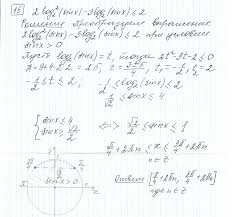 15
2 log₂²(sinx) - 3 log₂(sinx) ≤ 2
Решение Преобразуем выражение
2 log₂²(sinx) - 3 log₂(sinx) ≤ 2 при условии
sinx > 0
Пусть log₂(sinx) = t, тогда 2t² - 3t - 2 ≤ 0
-1/2 ≤ t ≤ 2, -1/2 ≤ log₂(sinx) ≤ 2
≤ sinx ≤ 4
{ sinx ≤ 4
sinx ≥ √2/2 ⟺ √2/2 ≤ sinx ≤ 1
π/4 + 2πn ≤ x ≤ 3π/4 + 2πn
n∈Z
sinx > 0
Ответ: [π/4 + 2πn, 3π/4 + 2πn]
где n∈Z